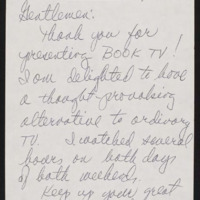 Gentlemen:
Thank you for
presenting BOOK TV!
I am delighted to have
a thought provoking
alternative to ordinary
TV. I watched several
hours on both days
of both weekend,
Keep up your great